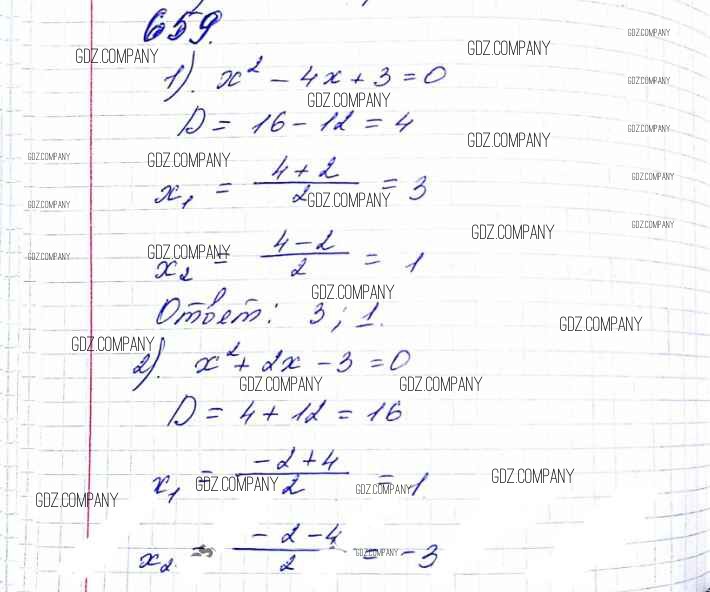 659.
GDZ.COMPANY GDZ.COMPANY GDZ.COMPANY
1). x² - 4x + 3 = 0
GDZ.COMPANY GDZ.COMPANY
D = 16 - 12 = 4
GDZ.COMPANY GDZ.COMPANY
GDZ.COMPANY GDZ.COMPANY
x₁ = (4+2)/2 = 3
GDZ.COMPANY GDZ.COMPANY GDZ.COMPANY
GDZ.COMPANY GDZ.COMPANY
x₂ = (4-2)/2 = 1
GDZ.COMPANY GDZ.COMPANY
GDZ.COMPANY
Ответ: 3; 1.
GDZ.COMPANY GDZ.COMPANY
2). x² + 2x - 3 = 0
GDZ.COMPANY GDZ.COMPANY
D = 4 + 12 = 16
x₁ = (-2+4)/2 = 1
GDZ.COMPANY GDZ.COMPANY GDZ.COMPANY GDZ.COMPANY
x₂ = (-2-4)/2 = -3
GDZ.COMPANY